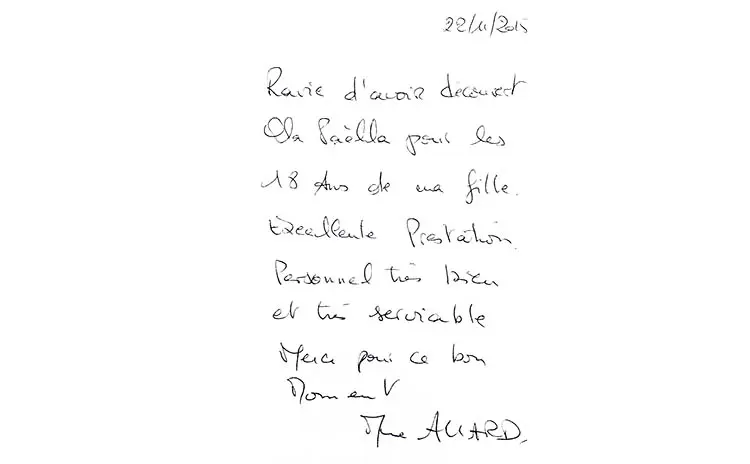 22/11/2015
Ravie d'avoir découvert
Ola Paëlla pour les
18 Ans de ma fille.
Excellente Prestation.
Personnel très bien
et très serviable
Merci pour ce bon
Moment
Mme